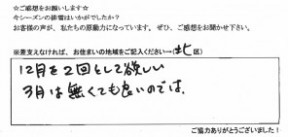 ☆ご感想をお願いします☆
今シーズンの排雪はいかがでしたか？
お客様の声が、私たちの原動力になっています。ぜひ、ご感想をお聞かせ下さい。
※差支えなければ、お住まいの地域をご記入ください→（北 区）
12月を2回として欲しい
3月は無くても良いのでは、
ご協力ありがとうございました！